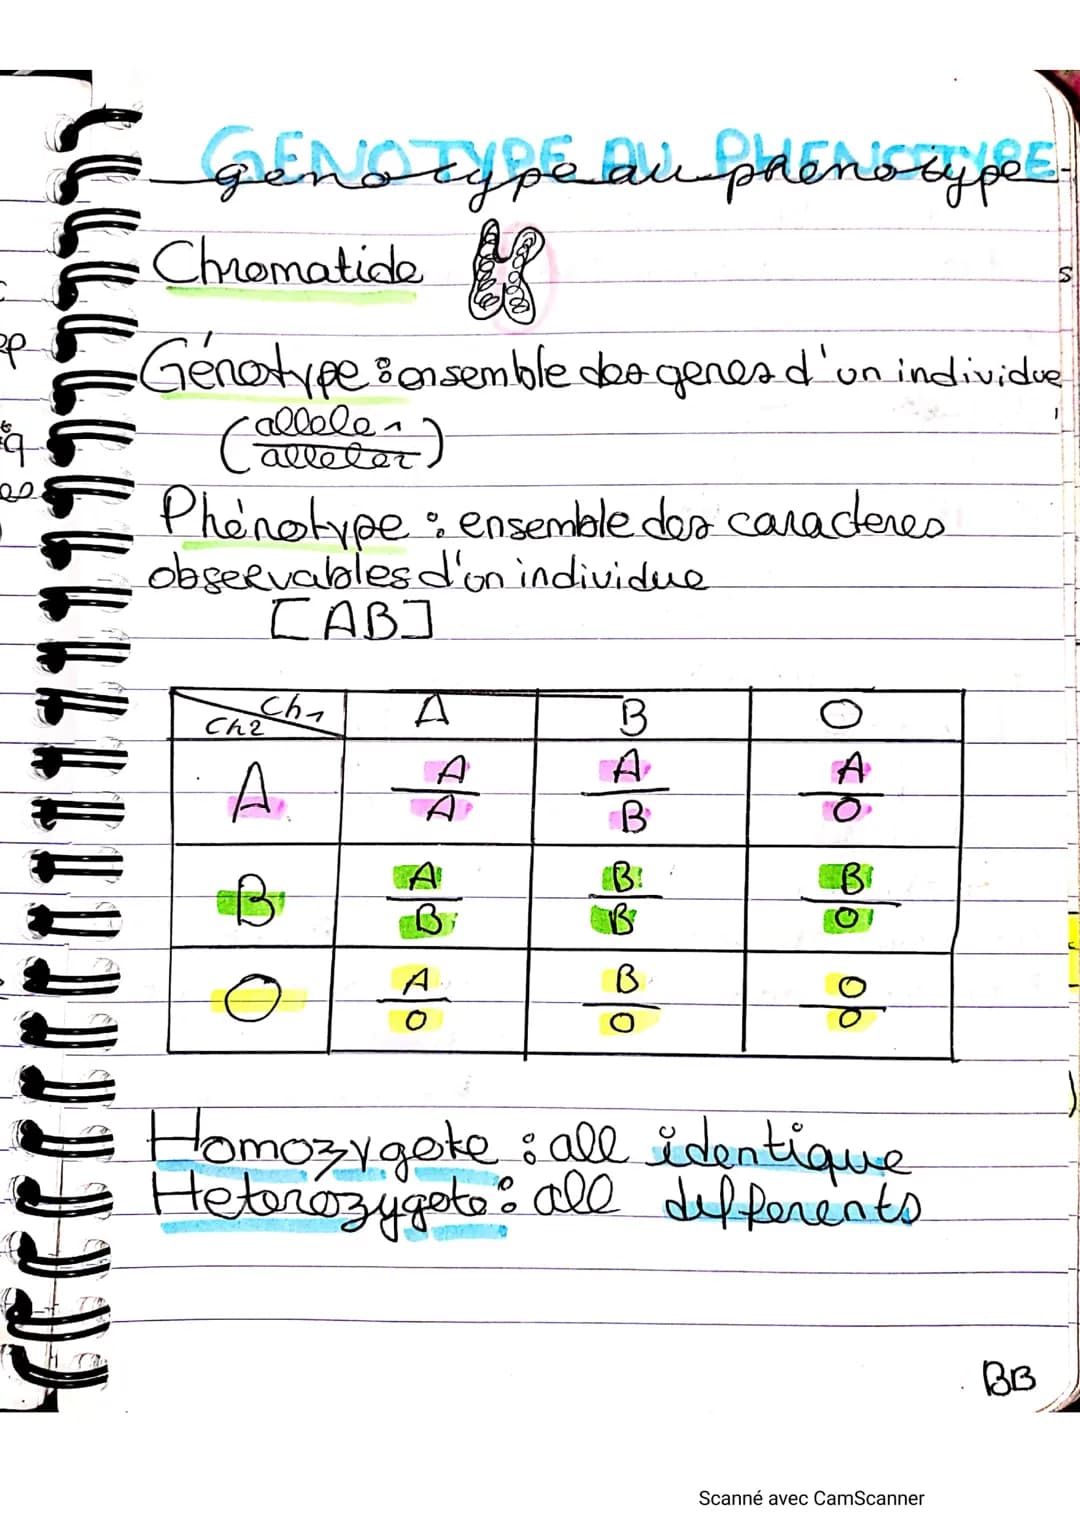 GENOTYPE AU PHENOTYPE
génotype au phénotype
Chromatide
Génotype : ensemble des genes d'un individue
(allele 1
allele 2)
Phénotype : ensemble des caracteres
observables d'un individue
[AB]
Ch1 A B O
Ch2
A A A A
A B O
B A B B
B B O
O A B O
O O O
Homozygote : all identique
Heterozygote : all differents
BB
Scanné avec CamScanner